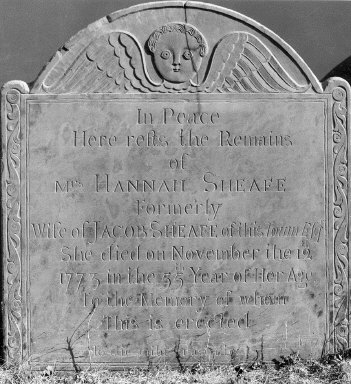 In Peace
Here rests the Remains
of
Mrs HANNAH SHEAFE
Formerly
Wife of JACOB SHEAFE of this Town Esqr
She died on November the 19
1773 in the 35 Year of Her Age
To the Memory of whom
This is erected